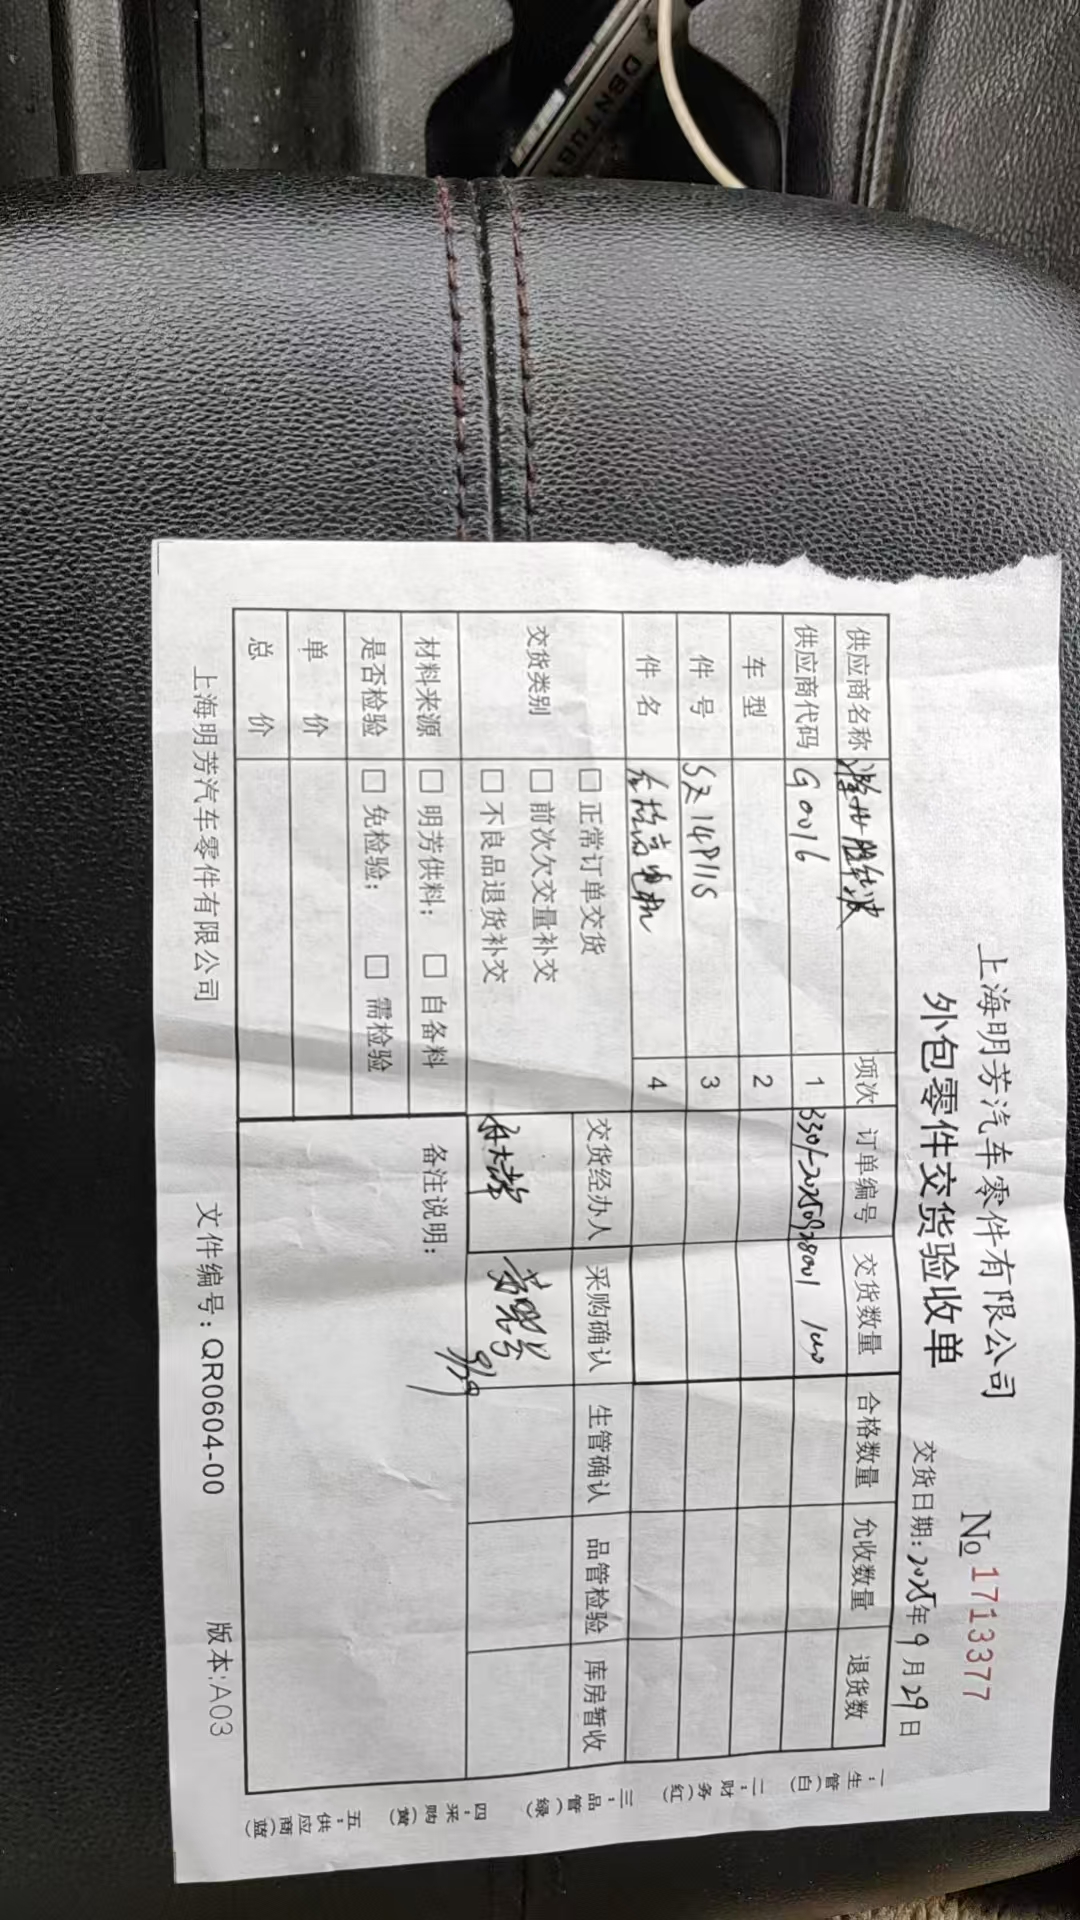 DBNTUB
上海明芳汽车零件有限公司
№ 1713377
外包零件交货验收单
交货日期：2025年9月29日
供应商名称 项次 订单编号 交货数量 合格数量 允收数量 退货数
供应商代码 G0016 1 3301-20250928001 100
车型 2
件号 SZ14P11S 3
件名 4
交货类别 □ 正常订单交货 交货经办人 采购确认 生管确认 品管检验 库房暂收
□ 前次欠交量补交
□ 不良品退货补交
材料来源 □ 明芳供料； □ 自备料 备注说明：
9/29
是否检验 □ 免检验； □ 需检验
单价
总价
上海明芳汽车零件有限公司 文件编号：QR0604-00 版本:A03
一：生管(白)
二：财务(红)
三：品管(绿)
四：采购(黄)
五：供应商(蓝)